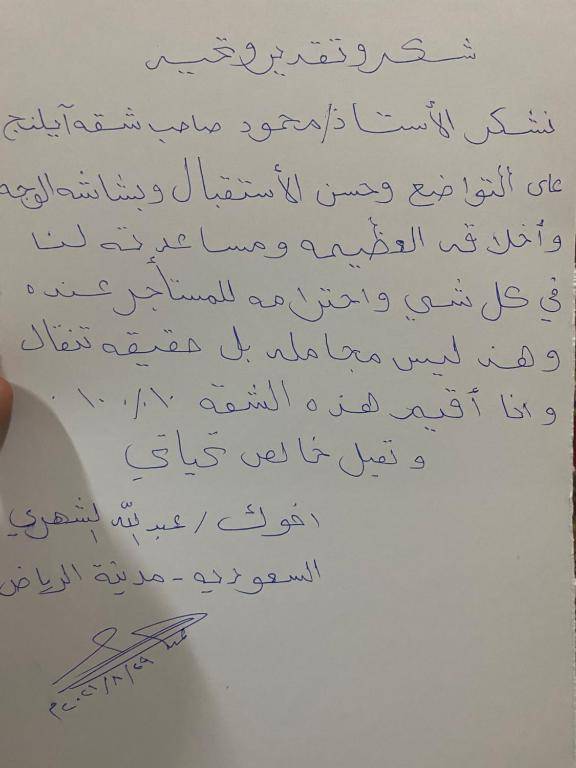 شكر وتقدير وتحيه
نشكر الأستاذ/محمود صاحب شقه آيلنج
على التواضع وحسن الأستقبال وبشاشه الوجه
وأخلاقه العظيمه ومساعدته لنا
في كل شي واحترامه للمستأجر عنده
وهذ ليس مجامله بل حقيقه تقال
وانا أقيم هذه الشقة ١٠٠٪١٠
وتقبل خالص تحياتي
اخوك / عبدالله الشهري
السعوديه - مدينة الرياض
٢٠٢١/٨/٢٩م